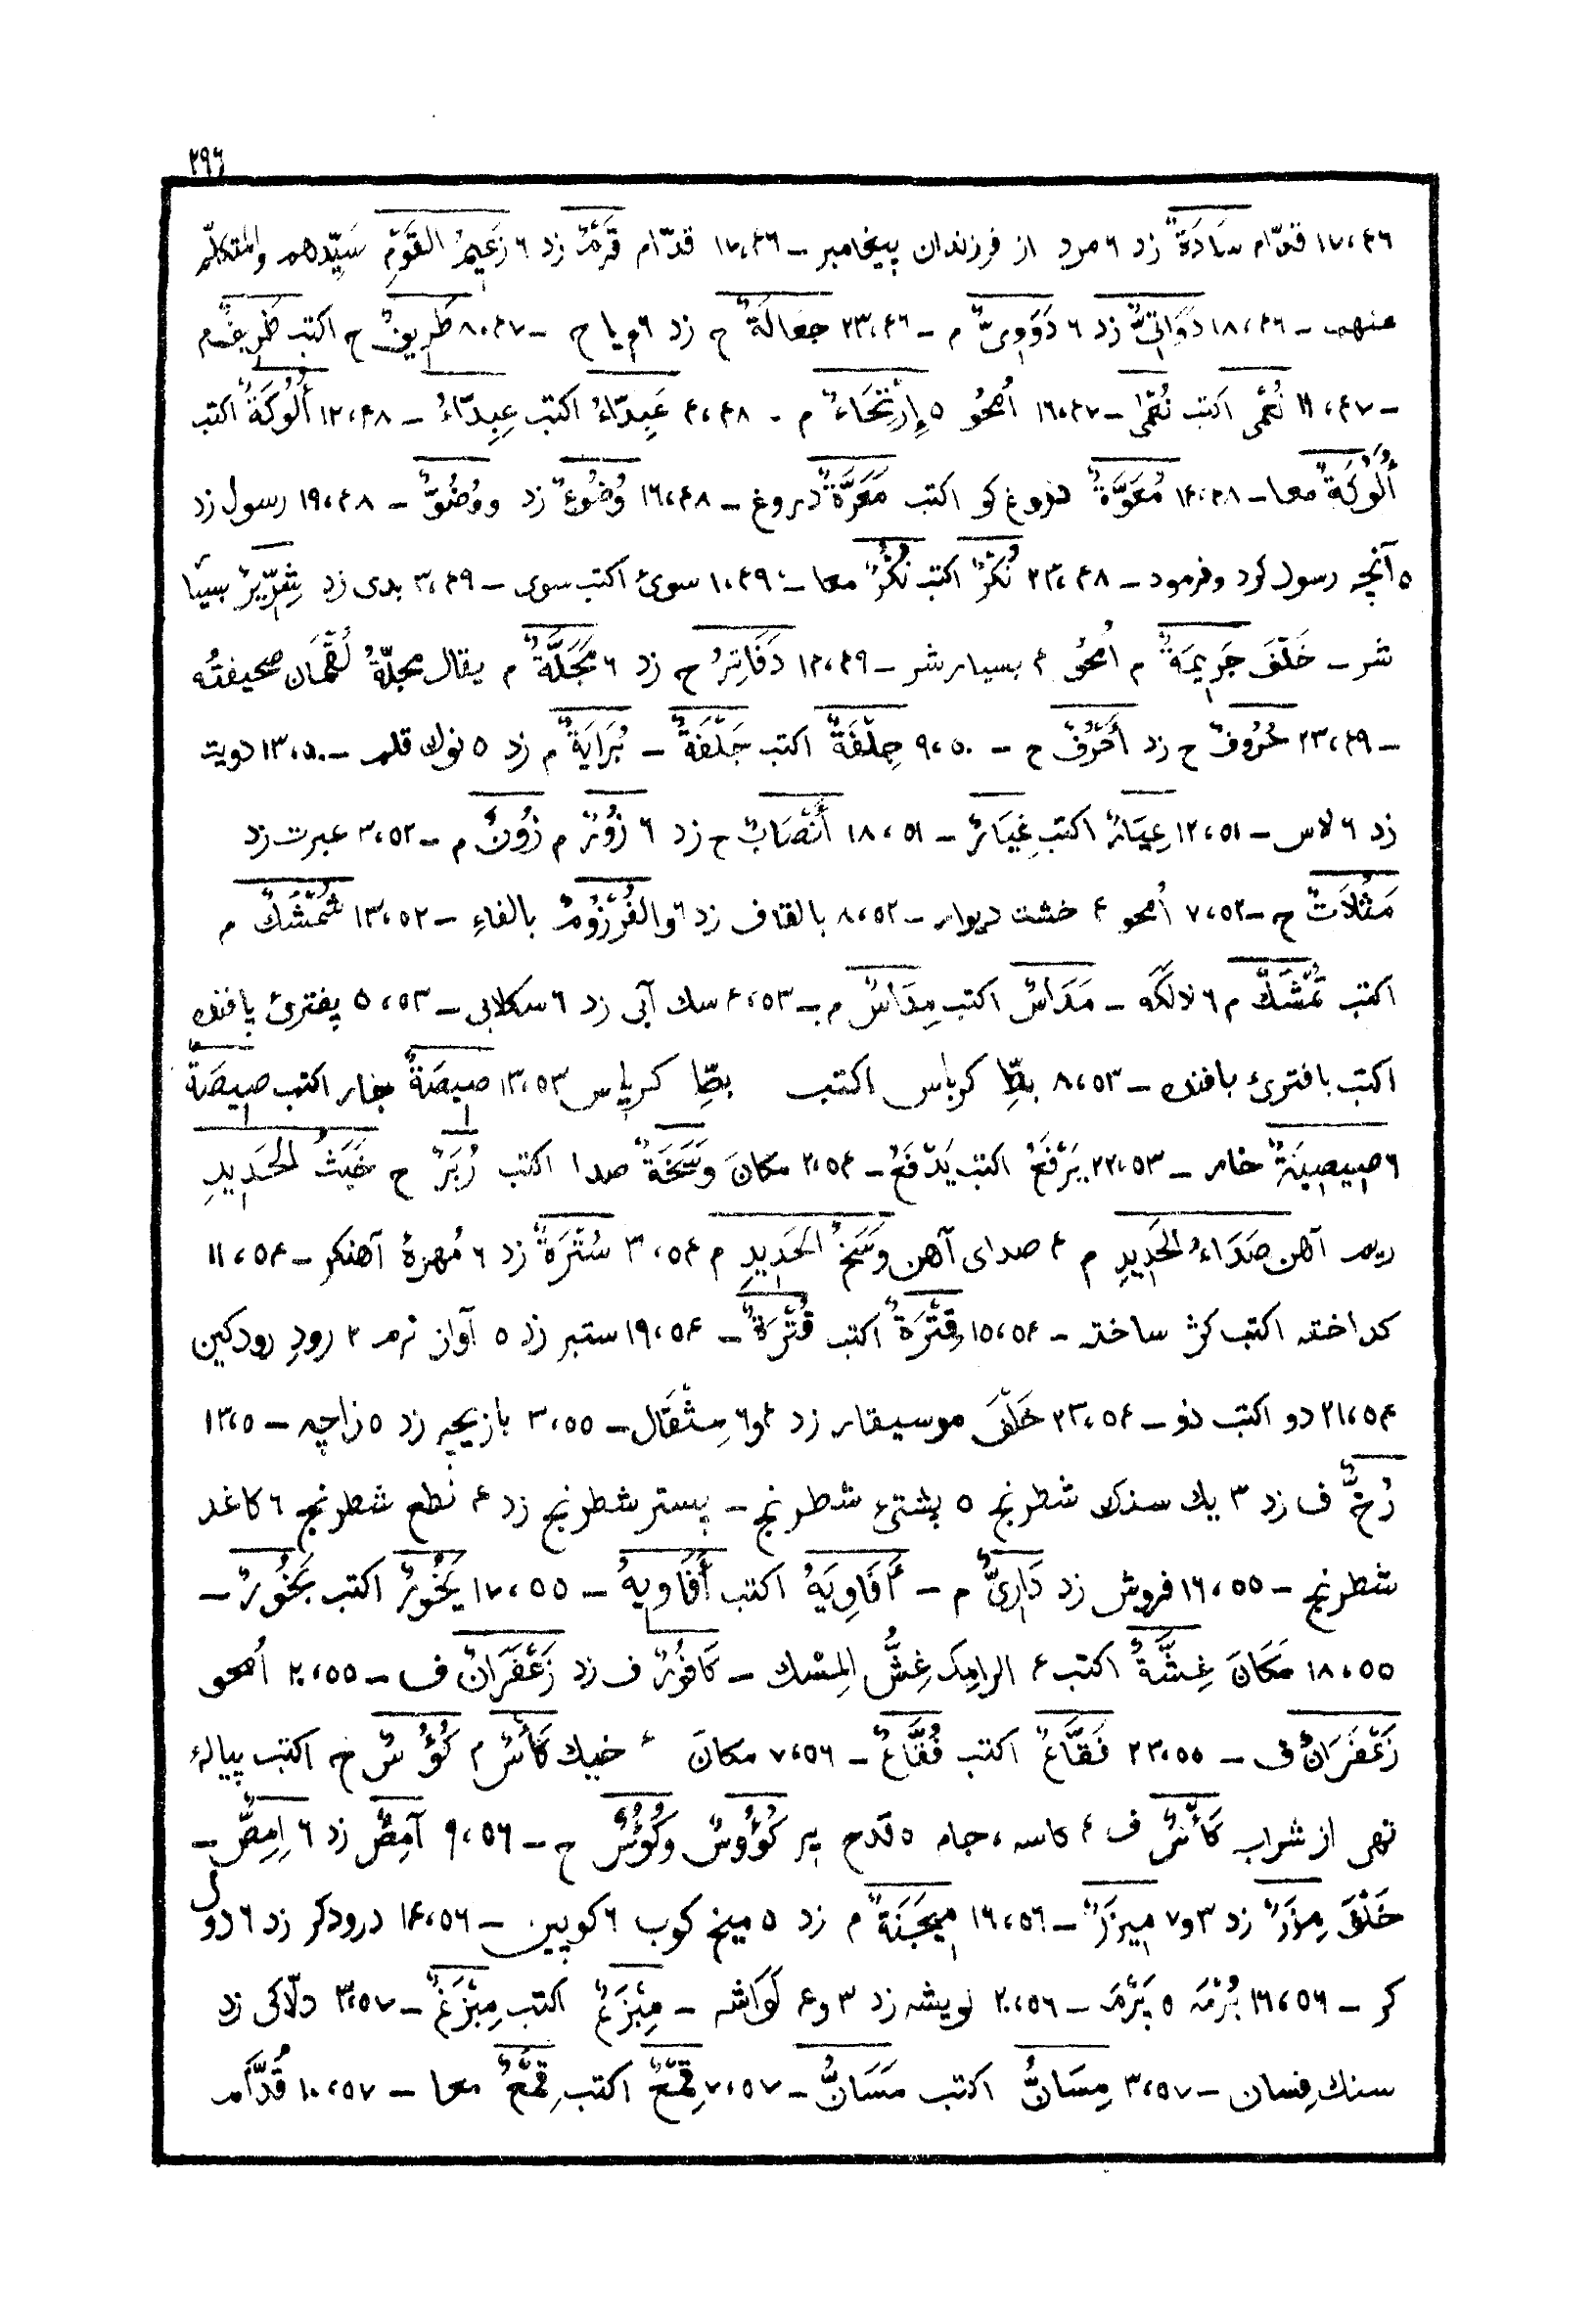 ۲۹٦
١٧،۴٦ قدّام سَادَةٌ زد ٦ مرد از فرزندان پیغامبر ـ ١٧،۴٦ قدّام قَرْمٌ زد ٦ زَعِيمُ القَوْمِ سَيِّدهم والمتكلّم
عنهم ـ ١٨،۴٦ دَوَاتِيٌّ زد ٦ دَوَوِيٌّ م ـ ٢٣،۴٦ جَعَالَةٌ ح زد ٦ م یا ح ـ ٨،۴٧ طَرِيفٌ ح اكتب ظَرِيفٌ م
ـ ١١،۴٧ نُعْمٰى اكتب نُعْمٰى ـ ١٦،۴٧ اُمحُو ٥ إِرْتِخَاءٌ م ـ ۴،۴٨ عَبِدّاءُ اكتب عِبِدّاءُ ـ ١٢،۴٨ أَلُوكَةٌ اكتب
أُلُوكَةٌ معا ـ ١۴،۴٨ مُعَوَّةٌ دروغ كو اكتب مَعَرَّةٌ دروغ ـ ١٦،۴٨ وُضُوعٌ زد ووُضُوٌّ ـ ١٩،۴٨ رسول زد
٥ آنچه رسول کرد وفرمود ـ ٢٣،۴٨ نُكْرٌ اكتب نُكُرٌ معا ـ ١،۴٩ سویٔ اكتب سوی ـ ٣،۴٩ بدی زد شِرِّيرٌ بسیا
شر ـ خَلْفَ جَرِيمَةٌ م اُمحُو ۴ بسیار شر ـ ١۴،۴٩ دَفَاتِرُ ح زد ٦ مَجَلَّةٌ م يقال مجلّةُ لُقْمَان صحيفتُه
ـ ٢٣،۴٩ حُرُوفٌ ح زد أَحْرُفٌ ح ـ ٩،٥٠ جِلْفَةٌ اكتب جَلْفَةٌ ـ بُرَايَةٌ م زد ٥ نوك قلم ـ ١٣،٥٠ دویت
زد ٦ لاس ـ ١٢،٥١ عِيَارٌ اكتب غِيَارٌ ـ ١٨،٥١ أَنْصَابٌ ح زد ٦ زُورٌ م زُونٌ م ـ ٣،٥٢ عبرت زد
مَثُلَاتٌ ح ـ ٧،٥٢ اُمحو ۴ خشت دیوار ـ ٨،٥٢ بالقاف زد ٦ والفُرْزُومُ بالفاءِ ـ ١٣،٥٢ شُمْشَكٌ م
اكتب تُمْشَكٌ م ٦ لالَكَه ـ مَدَاسٌ اكتب مِدَاسٌ م ـ ۴،٥٣ سك آبی زد ٦ سكلابی ـ ٥،٥٣ پفتریٔ بافنده
اكتب بافتریٔ بافنده ـ ٨،٥٣ بطِّ كرباس اكتب بطِّ كرپاس ١٣،٥٣ صيصَةٌ خار اكتب صِيصَةٌ
٦ صِيصِيَةٌ خار ـ ٢٢،٥٣ يَرْفَعُ اكتب يَدْفَعُ ـ ٢،٥۴ مكانَ وَسَخَةٌ صدا اكتب زُبَرٌ ح خَبَثُ الحَدِيدِ
ریم آهن صَدَاءُ الحَدِيدِ م ۴ صدای آهن وَسَخُ الحَدِيدِ م ٣،٥۴ سُتْرَةٌ زد ٦ مُهرهٔ آهنكر ـ ١١،٥۴
كداخته اكتب كژ ساخته ـ ١٥،٥۴ قِتْرَةٌ اكتب قُتْرَةٌ ـ ١٩،٥۴ ستبر زد ٥ آواز نرم ٢ رودِ رودكین
٢١،٥۴ دو اكتب دنو ـ ٢٣،٥۴ خَلْفَ موسیقار زد ۴ و٦ مِثْقَال ـ ٣،٥٥ بازیچه زد ٥ زاچه ـ ١٣،٥
رُخٌّ ف زد ٣ یك سنك شطرنج ٥ پشتیٔ شطرنج ـ پستر شطرنج زد ۴ نطع شطرنج ٦ كاغذ
شطرنج ـ ١٦،٥٥ فروش زد دَارِيٌّ م ـ أَفَاوِيَهُ اكتب أَفَاوِيهُ ـ ١٧،٥٥ يَخُورٌ اكتب بَخُورٌ ـ
١٨،٥٥ مَكَانَ غِشَّةٌ اكتب ۴ الرامِك غِشُّ المِسْك ـ كَافُورٌ ف زد زَعْفَرَانٌ ف ـ ٢٠،٥٥ اُمحو
زَعْفَرَانٌ ف ـ ٢٣،٥٥ فَقَّاعٌ اكتب فُقَّاعٌ ـ ٧،٥٦ مكانَ ۴ خیك كَأْسٌ م كُؤُسٌ ح اكتب پیالهٔ
تهی از شراب كَأْسٌ ف ۴ كاسه ، جام ٥ قدح پر كُؤُوسٌ وكُؤُسٌ ح ـ ٩،٥٦ آمِصٌ زد ٦ اِمِصٌّ ـ
خَلْفَ مِزَرٌ زد ٣ و٧ مِيزَرٌ ـ ١٢،٥٦ مِيجَنَةٌ م زد ٥ میخ كوب ٦ كوپین ـ ١۴،٥٦ درودكر زد ٦ دول
كر ـ ١٦،٥٦ بُرْمَه ٥ پَرْمَه ـ ٢٠،٥٦ لویشه زد ٣ و۴ لَوَاشه ـ مِبْزَغٌ اكتب مِبْزَغٌ ـ ٣،٥٧ دلّاكی زد
سنك فِسان ـ ٣،٥٧ مِسَانٌّ اكتب مَسَانٌّ ـ ٧،٥٧ قِمْعٌ اكتب قِمَعٌ معا ـ ١٠،٥٧ قُدَّام